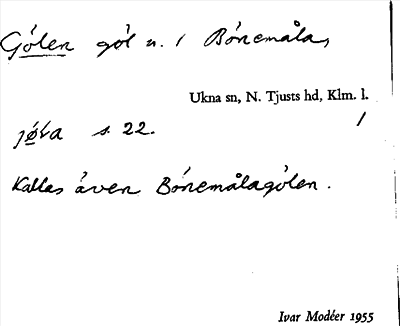 Gölen göl n. i Bönemåla,
Ukna sn, N. Tjusts hd, Klm. l.
jöva s. 22.
Kallas även Bönemålagölen.
Ivar Modéer 1955